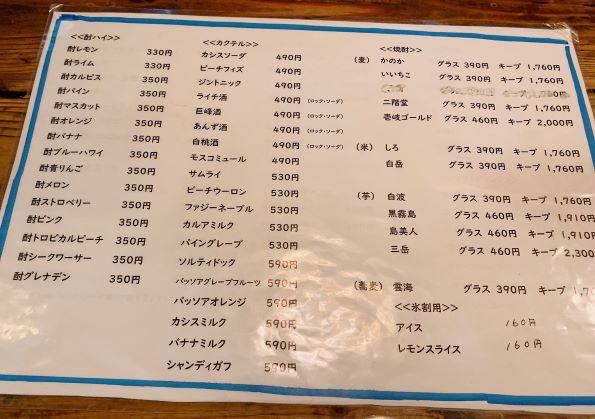 <<酎ハイ>>
酎レモン 330円
酎ライム 330円
酎カルピス 350円
酎パイン 350円
酎マスカット 350円
酎オレンジ 350円
酎バナナ 350円
酎ブルーハワイ 350円
酎青りんご 350円
酎メロン 350円
酎ストロベリー 350円
酎ピンク 350円
酎トロピカルピーチ 350円
酎シークワーサー 350円
酎グレナデン 350円
<<カクテル>>
カシスソーダ 490円
ピーチフィズ 490円
ジントニック 490円
ライチ酒 490円 (ロック・ソーダ)
巨峰酒 490円 (ロック・ソーダ)
あんず酒 490円 (ロック・ソーダ)
白桃酒 490円 (ロック・ソーダ)
モスコミュール 490円
サムライ 530円
ピーチウーロン 530円
ファジーネーブル 530円
カルアミルク 530円
パイングレープ 530円
ソルティドック 590円
パッソアグレープフルーツ 590円
パッソアオレンジ 590円
カシスミルク 590円
バナナミルク 590円
シャンディガフ 590円
<<焼酎>>
(麦) かのか グラス 390円 キープ 1,760円
いいちこ グラス 390円 キープ 1,760円
二階堂 グラス 390円 キープ 1,760円
壱岐ゴールド グラス 460円 キープ 2,000円
(米) しろ グラス 390円 キープ 1,760円
白岳 グラス 390円 キープ 1,760円
(芋) 白波 グラス 390円 キープ 1,760円
黒霧島 グラス 460円 キープ 1,910円
島美人 グラス 460円 キープ 1,910円
三岳 グラス 460円 キープ 2,300
(蕎麦) 雲海 グラス 390円 キープ 1,7
<<氷割用>>
アイス 160円
レモンスライス 160円